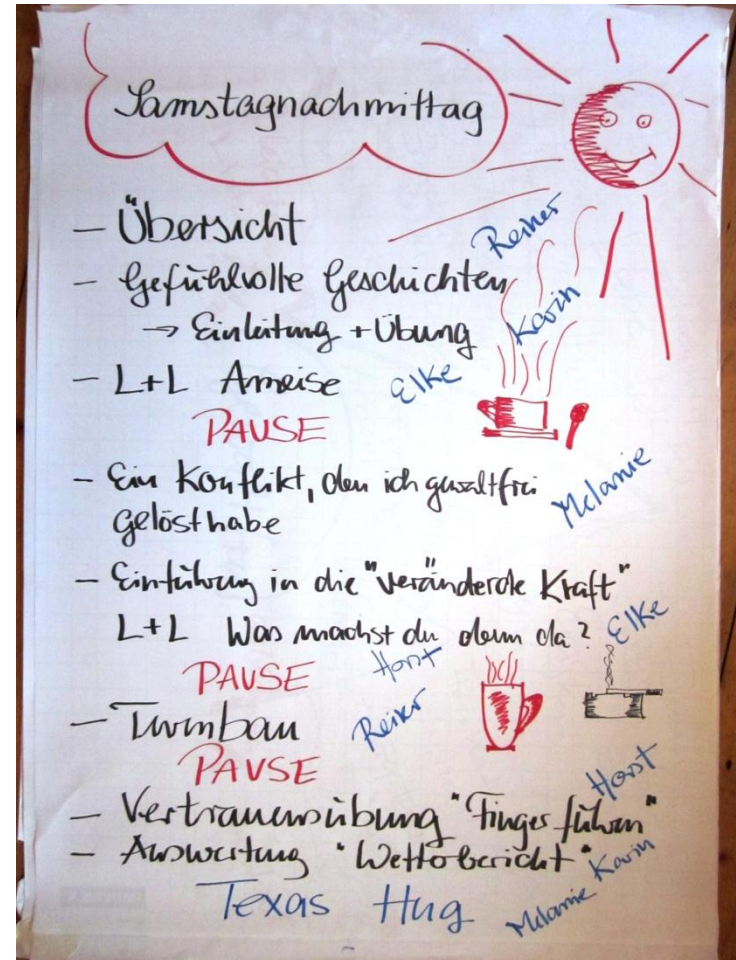 Samstagnachmittag
– Übersicht Reiner
– Gefühlvolle Geschichten
→ Einleitung + Übung Karin
– L+L Ameise Elke
PAUSE
– Ein Konflikt, den ich gewaltfrei
gelöst habe Melanie
– Einführung in die "verändernde Kraft"
L+L Was machst du denn da? Elke
PAUSE Horst
– Turmbau Reiner
PAUSE
– Vertrauensübung "Finger führen" Horst
– Auswertung "Wetterbericht" Karin
Texas Hug Melanie